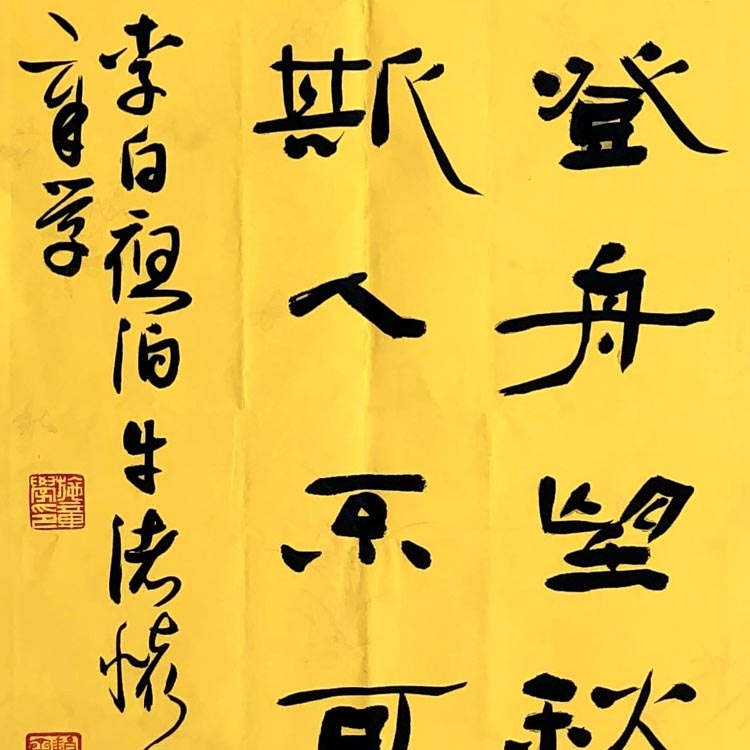 登舟望秋
斯人不可
李白夜泊牛渚懷
章学